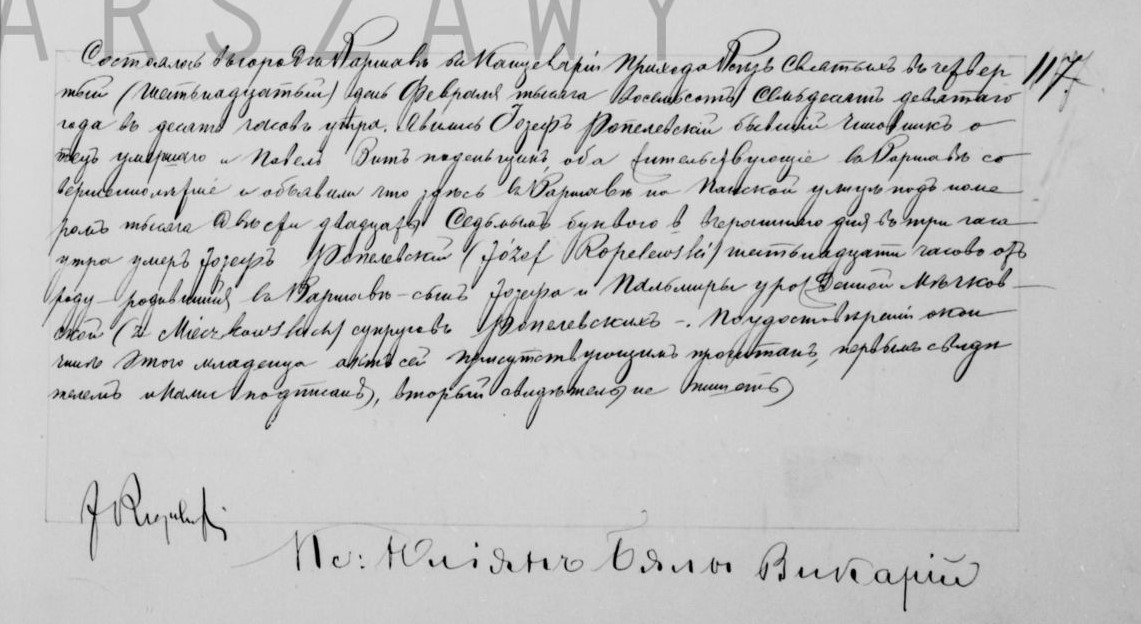 ARSZAWY
Состоялось въ городѣ Варшавѣ въ Канцеляріи Прихода Всѣхъ Святыхъ въ четвер
тый (шестьнадцатый) день Февраля тысяча восемьсотъ семьдесятъ девятаго
года въ десять часовъ утра. Явились Іозефъ Ропелевскій бывшій чиновникъ о
тецъ умершаго и Павелъ Витъ поденьщикъ оба жительствующіе въ Варшавѣ со
вершеннолѣтніе и объявили что здѣсь въ Варшавѣ по Панской улицѣ подъ номе
ромъ тысяча двѣсти двадцать седьмымъ буквою в вчерашняго дня въ три часа
утра умеръ Іозефъ Ропелевскій (Józef Ropelewski) шестьнадцати часовъ отъ
роду - родившійся въ Варшавѣ - сынъ Іозефа и Пальмиры урожденной Мѣчков-
ской (z Mieczkowskich) супруговъ Ропелевскихъ -. По удостовѣреніи о кон
чинѣ этого младенца актъ сей присутствующимъ прочитанъ, первымъ свидѣ
телемъ и нами подписанъ, вторый свидѣтель не пишетъ
117.
J Ropelewski
Кс: Юліянъ Бялы Викарій